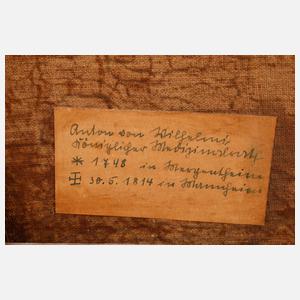 Anton von Wilhelmi
Königlicher Medizinalrat
* 1748 in Mergentheim
✠ 30. 5. 1814 in Mannheim